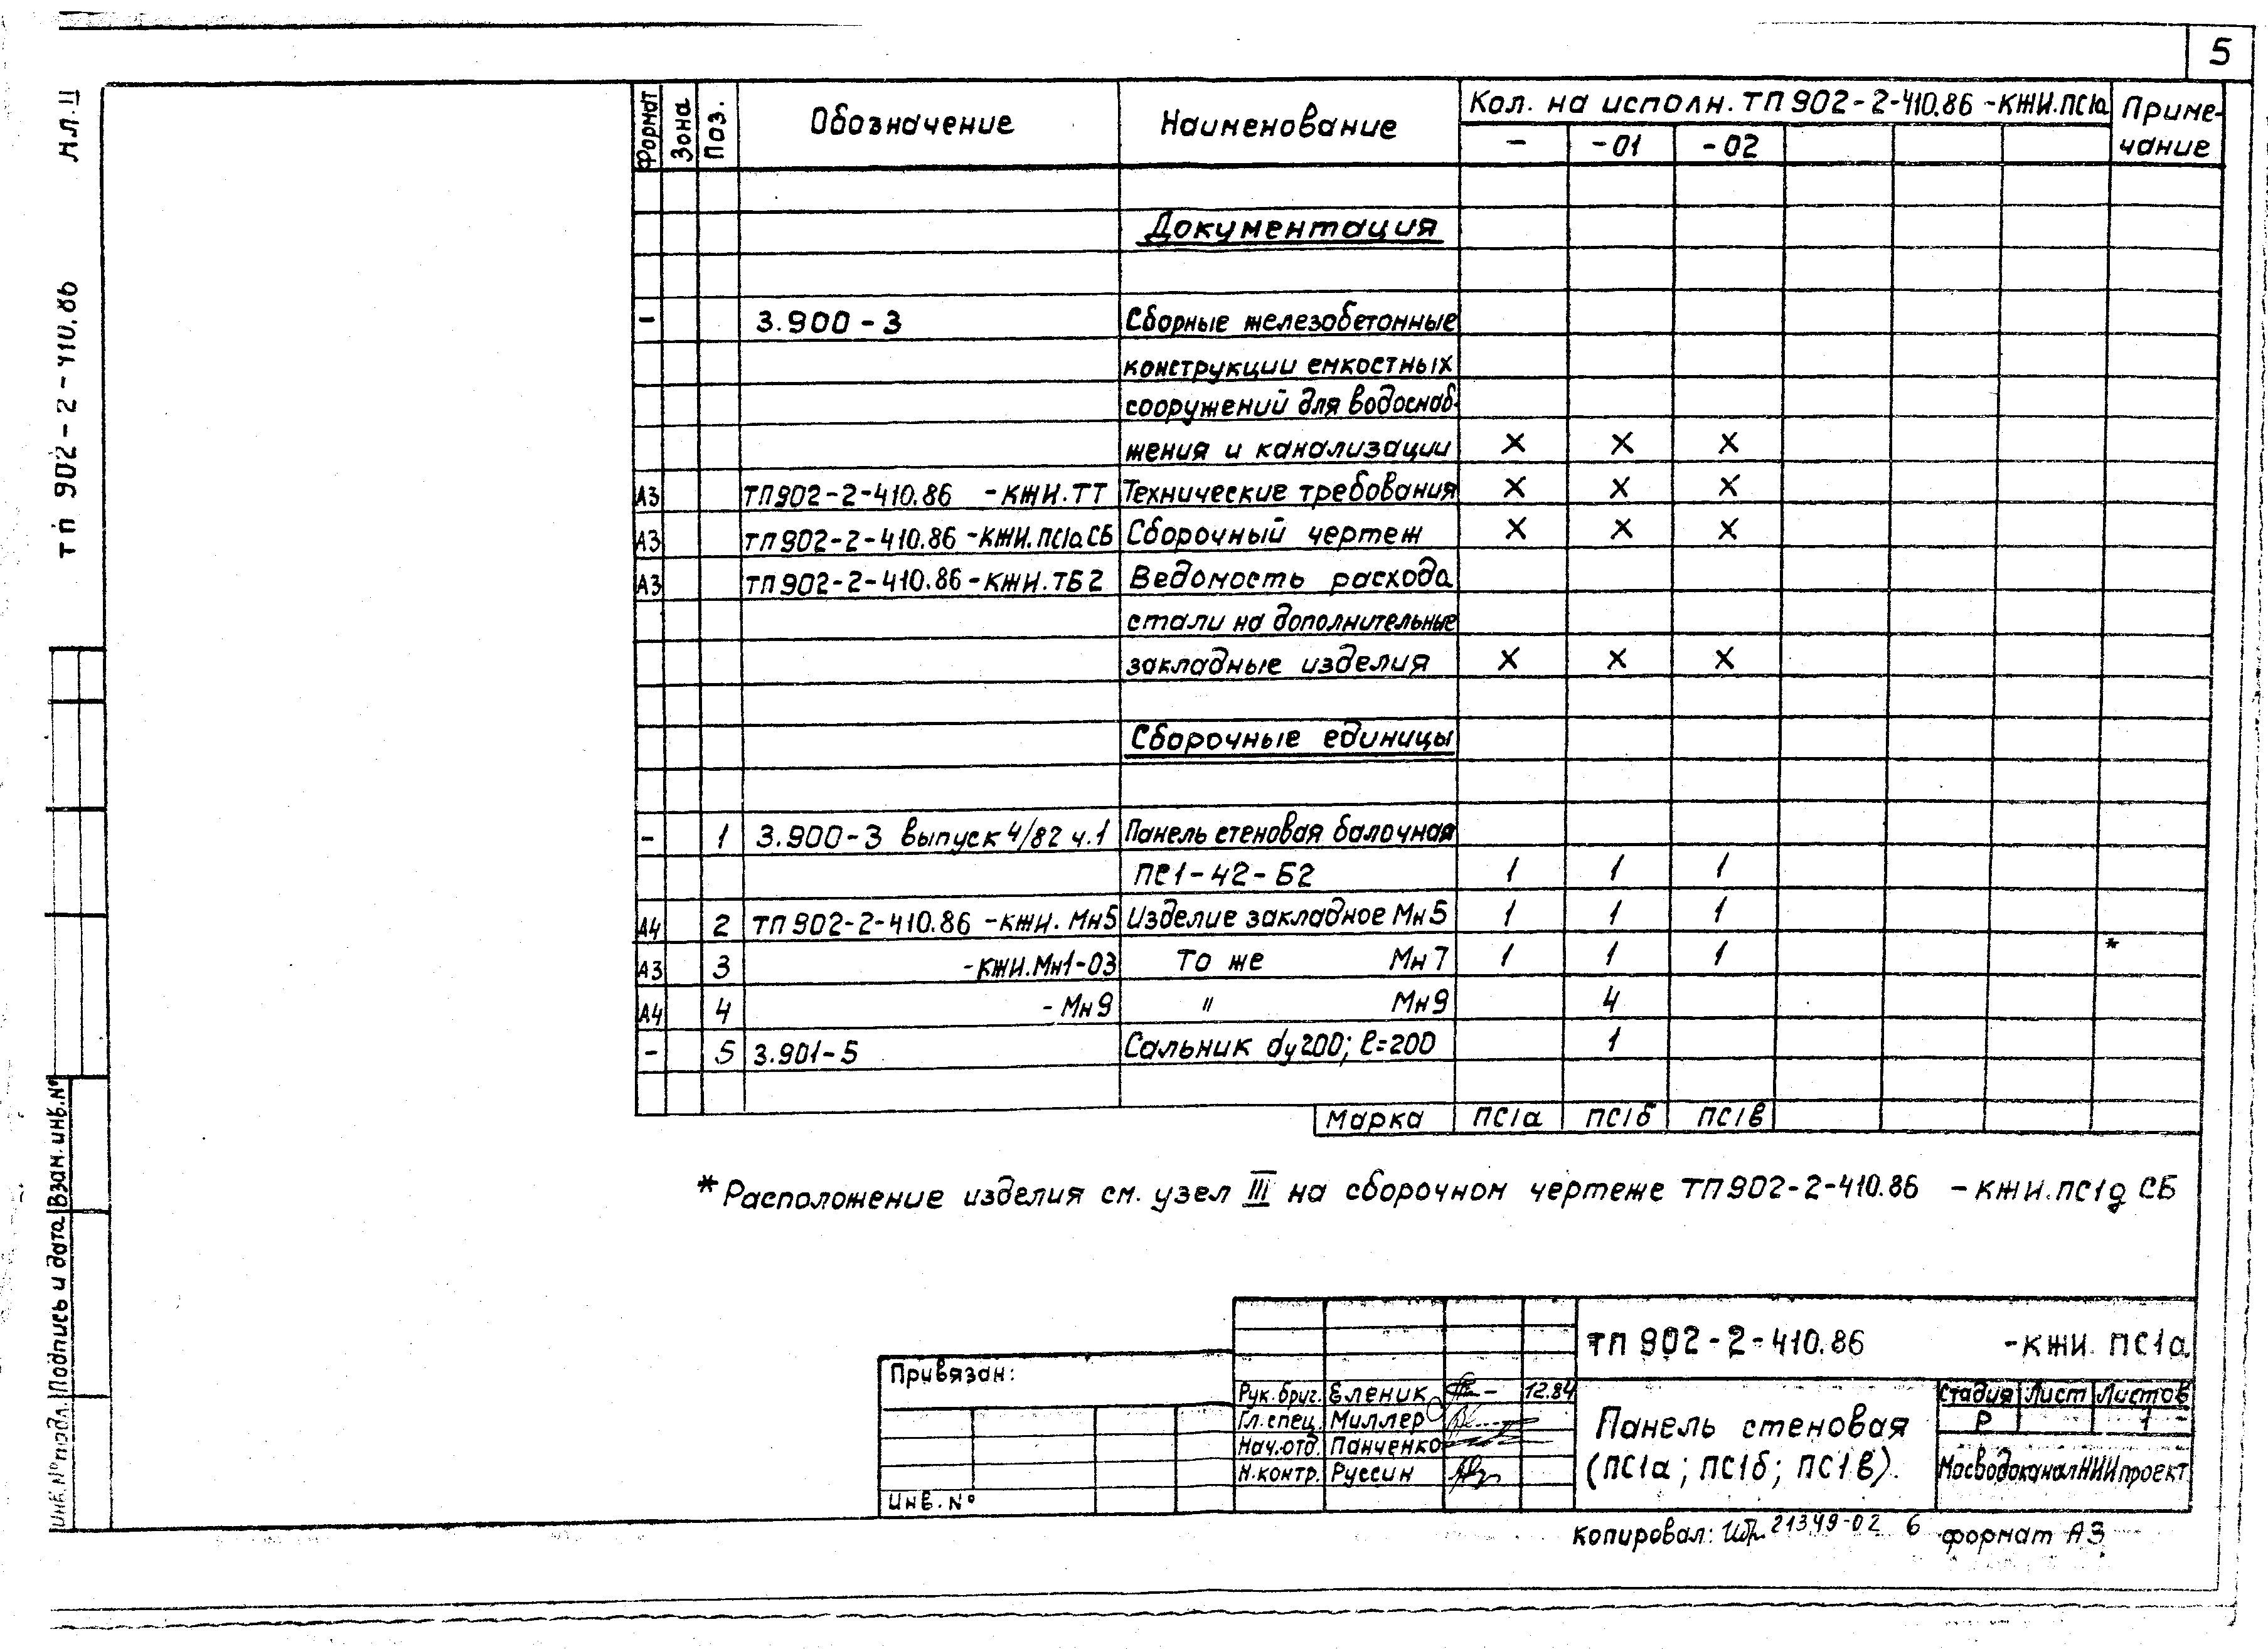 5
Н.П. II
ТП 902-2-410.86
Формат Зона Поз. Обозначение Наименование Кол. на исполн. ТП 902-2-410.86 -КЖИ.ПС1а Приме-
- -01 -02 чание
Документация
- 3.900-3 Сборные железобетонные
конструкции емкостных
сооружений для водоснаб-
жения и канализации X X X
А3 ТП 902-2-410.86 -КЖИ.ТТ Технические требования X X X
А3 ТП 902-2-410.86 -КЖИ.ПС1аСБ Сборочный чертеж X X X
А3 ТП 902-2-410.86-КЖИ.ТБ2 Ведомость расхода
стали на дополнительные
закладные изделия X X X
Сборочные единицы
- 1 3.900-3 выпуск 4/82 ч.1 Панель стеновая балочная
ПС1-42-Б2 1 1 1
А4 2 ТП 902-2-410.86 -КЖИ. Мн5 Изделие закладное Мн5 1 1 1
А3 3 -КЖИ.Мн1-03 То же Мн7 1 1 1 *
А4 4 -Мн9 " Мн9 4
- 5 3.901-5 Сальник dу200; l=200 1
Марка ПС1а ПС1б ПС1в
* Расположение изделия см. узел III на сборочном чертеже ТП 902-2-410.86 -КЖИ.ПС1д СБ
Взам. инв. №
Подпись и дата
Инв. № подл.
Привязан:
Инв. №
ТП 902-2-410.86 -КЖИ. ПС1а
Рук. бриг. Еленик 12.84
Гл. спец. Миллер
Нач. отд. Панченко
Н. контр. Руссин
Панель стеновая
(ПС1а; ПС1б; ПС1в).
Стадия Лист Листов
Р 1
МосводоканалНИИпроект
Копировал: 21349-02 6 формат А3